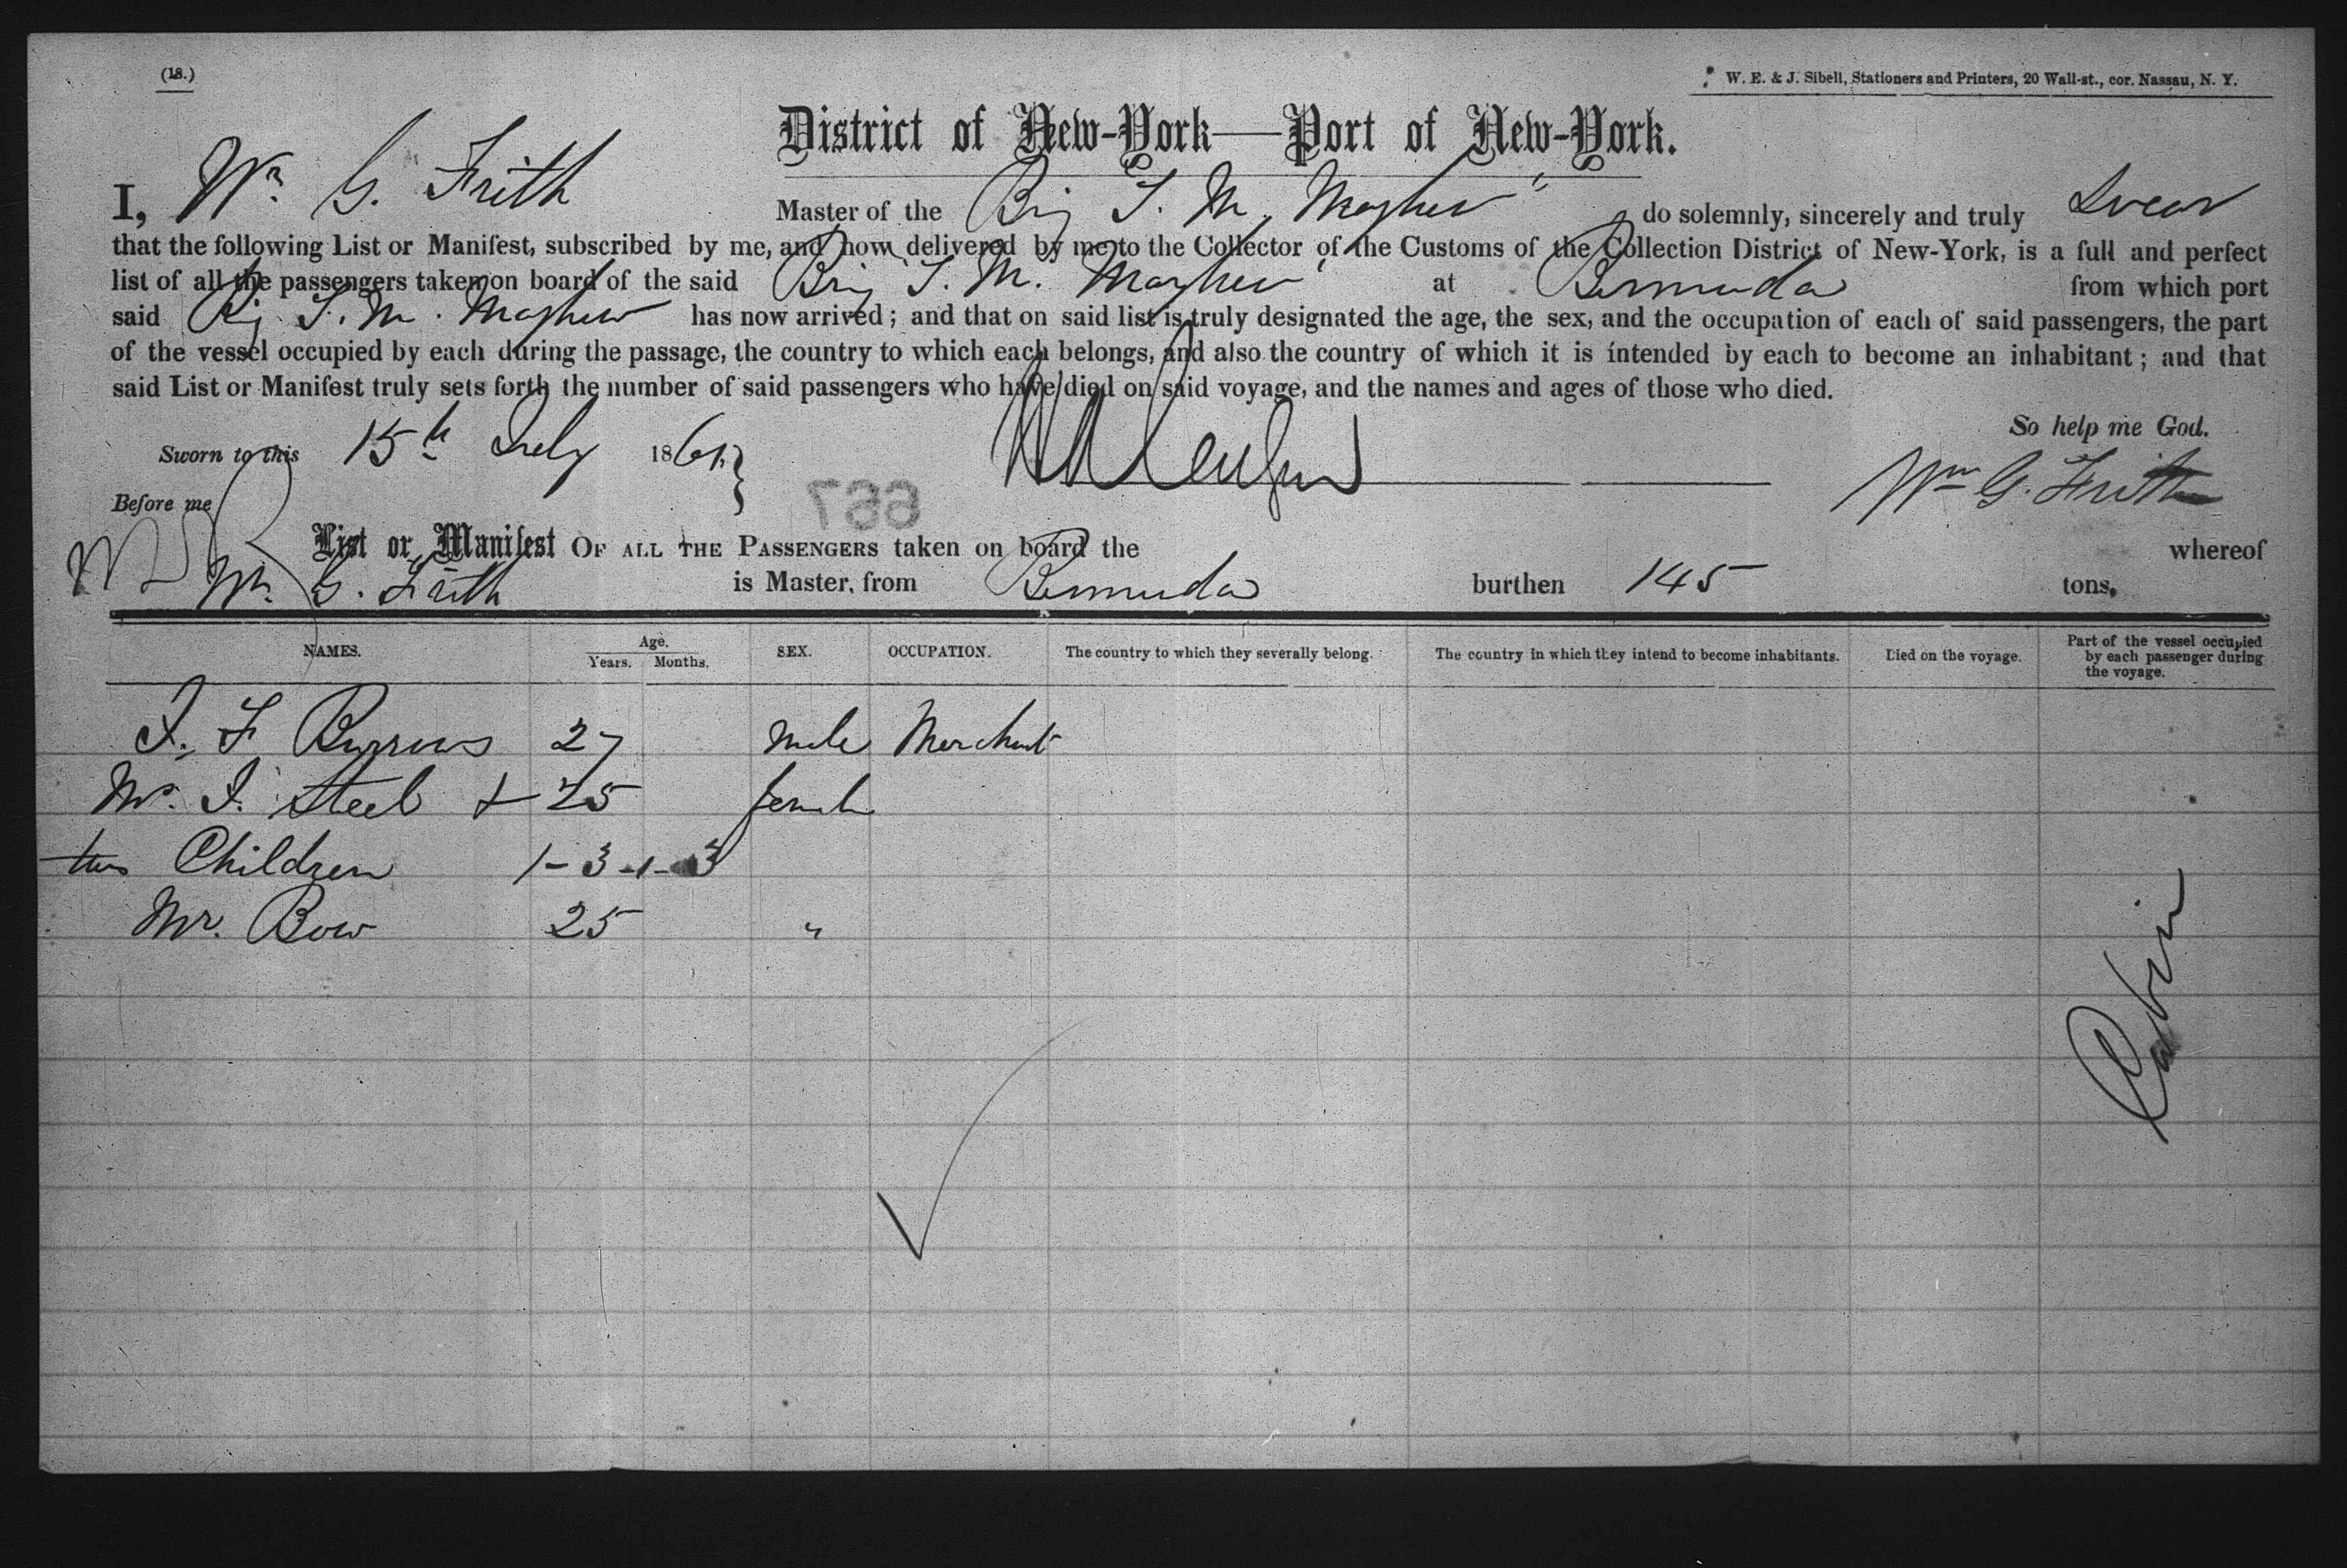 (18.)
W. E. & J. Sibell, Stationers and Printers, 20 Wall-st., cor. Nassau, N. Y.
District of New-York—Port of New-York.
I, Wm. G. Frith Master of the Brig T. M. Mayhew do solemnly, sincerely and truly Swear
that the following List or Manifest, subscribed by me, and now delivered by me to the Collector of the Customs of the Collection District of New-York, is a full and perfect
list of all the passengers taken on board of the said Brig T. M. Mayhew at Bermuda from which port
said Brig T. M. Mayhew has now arrived; and that on said list is truly designated the age, the sex, and the occupation of each of said passengers, the part
of the vessel occupied by each during the passage, the country to which each belongs, and also the country of which it is intended by each to become an inhabitant; and that
said List or Manifest truly sets forth the number of said passengers who have died on said voyage, and the names and ages of those who died.
So help me God.
Sworn to this 15th July 1861.
Wm G. Frith
Before me
667
List or Manifest OF ALL THE PASSENGERS taken on board the whereof
Wm. G. Frith is Master, from Bermuda burthen 145 tons.
NAMES. Age. Years. Months. SEX. OCCUPATION. The country to which they severally belong. The country in which they intend to become inhabitants. Died on the voyage. Part of the vessel occupied by each passenger during the voyage.
J. F Burrows 27 male Merchant
Mrs. J. Steel + 25 female
two Children 1-3-1-3
Mr. Bow 25 "
Cabin